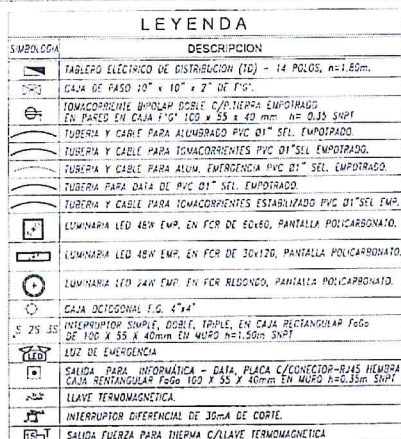 LEYENDA
SIMBOLOGIA DESCRIPCION
TABLERO ELECTRICO DE DISTRIBUCION (TD) - 14 POLOS, h=1.80m.
CAJA DE PASO 10" x 10" x 2" DE F°G°.
TOMACORRIENTE BIPOLAR DOBLE C/P.TIERRA EMPOTRADO
EN PARED EN CAJA F°G° 100 x 55 x 40 mm h= 0.35 SNPT
TUBERIA Y CABLE PARA ALUMBRADO PVC Ø1" SEL. EMPOTRADO.
TUBERIA Y CABLE PARA TOMACORRIENTES PVC Ø1"SEL EMPOTRADO.
TUBERIA Y CABLE PARA ALUM. EMERGENCIA PVC Ø1" SEL. EMPOTRADO.
TUBERIA PARA DATA DE PVC Ø1" SEL. EMPOTRADO.
TUBERIA Y CABLE PARA TOMACORRIENTES ESTABILIZADO PVC Ø1"SEL EMP.
LUMINARIA LED 48W EMP. EN FCR DE 60x60, PANTALLA POLICARBONATO.
LUMINARIA LED 48W EMP. EN FCR DE 30x120, PANTALLA POLICARBONATO.
LUMINARIA LED 24W EMP. EN FCR REDONDO, PANTALLA POLICARBONATO.
CAJA OCTOGONAL F.G. 4"x4"
S 2S 3S INTERRUPTOR SIMPLE, DOBLE, TRIPLE, EN CAJA RECTANGULAR FoGo
DE 100 X 55 X 40mm EN MURO h=1.50m SNPT
LED LUZ DE EMERGENCIA
SALIDA PARA INFORMÁTICA - DATA, PLACA C/CONECTOR-RJ45 HEMBRA
CAJA RENTANGULAR FoGo 100 X 55 X 40mm EN MURO h=0.35m SNPT
LLAVE TERMOMAGNETICA.
INTERRUPTOR DIFERENCIAL DE 30mA DE CORTE.
SALIDA FUERZA PARA THERMA C/LLAVE TERMOMAGNETICA